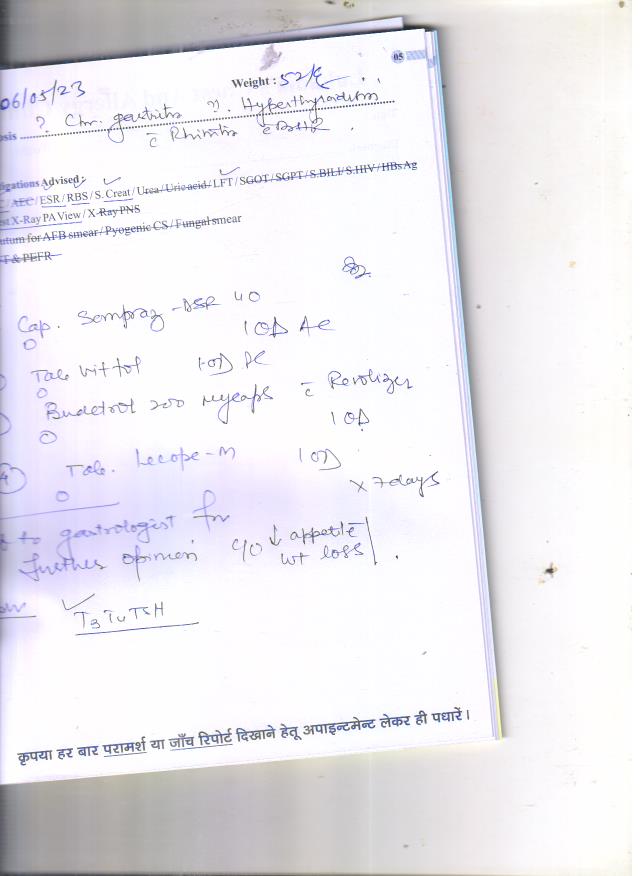 05
06/05/23 Weight : 52 K
osis ? Chr. gastritis ? Hyperthyroidism
c̄ Rhinitis c̄ BHR
tigations Advised :
C / AEC / ESR / RBS / S. Creat / Urea / Uric acid / LFT / SGOT / SGPT / S.BILI / S.HIV / HBs Ag
est X-Ray PA View / X-Ray PNS
utum for AFB smear / Pyogenic CS / Fungal smear
T & PEFR
Cap. Sompraz-DSR 40
1 OD AC
Tab 1 OD PC
200 c̄ Revolizer
1 OD
4 Tab. Lecope-M 1 OD
x 7 days
to gastrologist for
further opinion c/o ↓ appetite
wt loss
T3 T4 TSH
कृपया हर बार परामर्श या जाँच रिपोर्ट दिखाने हेतू अपाइन्टमेन्ट लेकर ही पधारें।